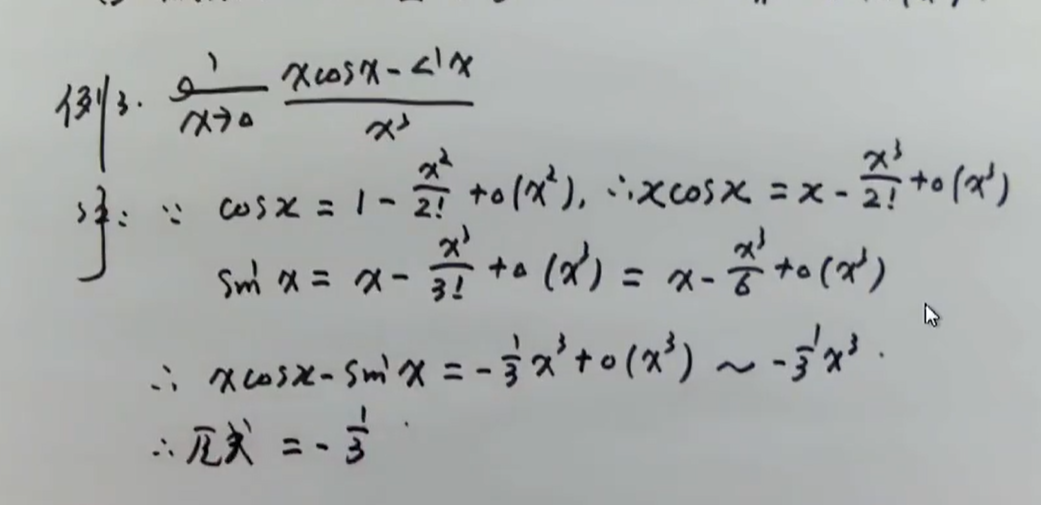 例3. lim x→0 (x cos x - sin x)/x³
解: ∵ cos x = 1 - x²/2! + o(x²), ∴ x cos x = x - x³/2! + o(x³)
sin x = x - x³/3! + o(x³) = x - x³/6 + o(x³)
∴ x cos x - sin x = -1/3 x³ + o(x³) ~ -1/3 x³.
∴ 原式 = -1/3.